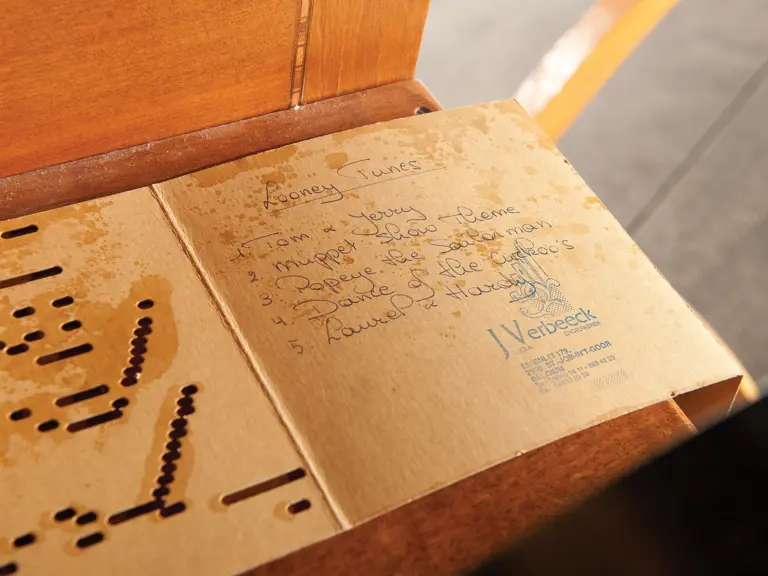 Looney Tunes
1. Tom & Jerry
2 Muppet Show Theme
3. Popeye the Sailorman
4. Dance of the Cuckoo's
5. Laurel & Hardy
J Verbeeck
ST. JOB-INT-GOOR
BELGIUM